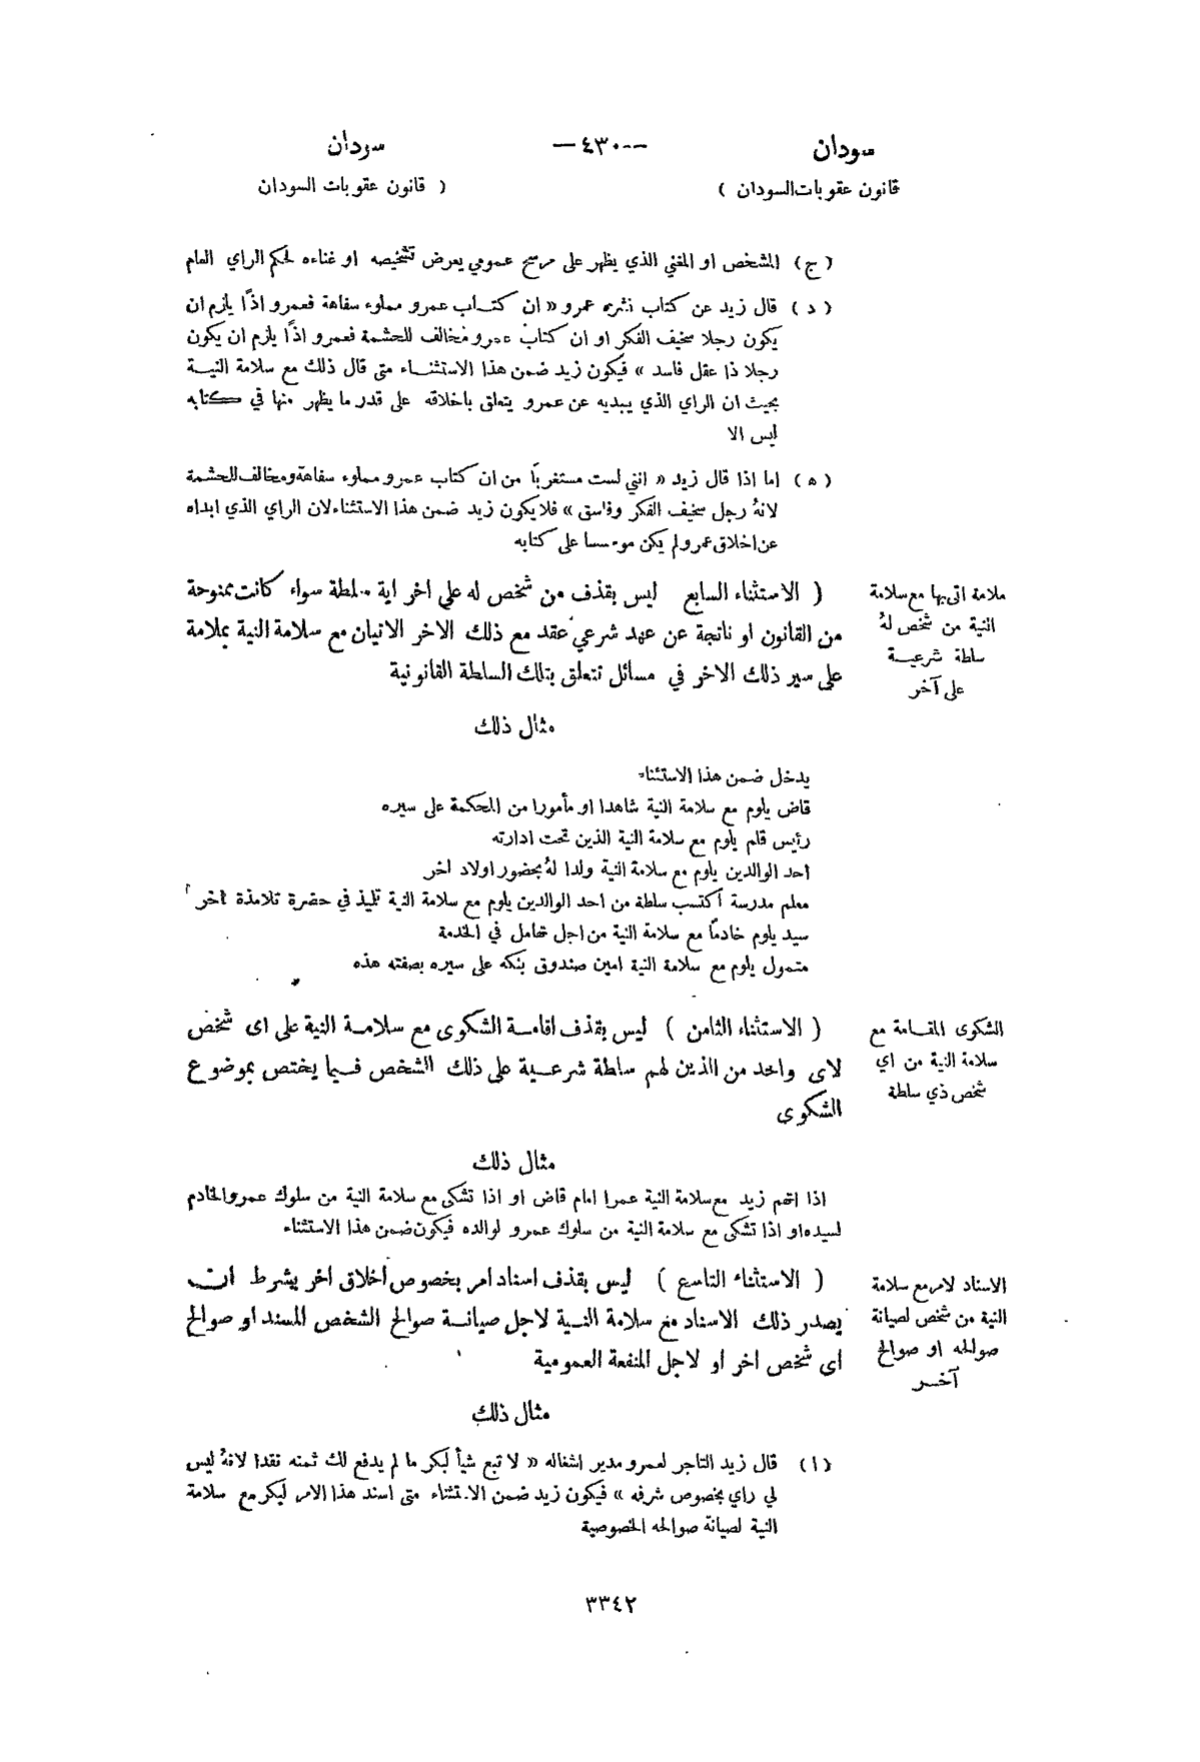 سودان —٤٣٠— سودان
قانون عقوبات السودان ) ( قانون عقوبات السودان
(ج) المشخص او المغني الذي يظهر على مرسح عمومي يعرض تشخيصه او غناءه لحكم الراي العام
(د) قال زيد عن كتاب نشره عمرو « ان كتاب عمرو مملوء سفاهة فعمرو اذًا يلزم ان
يكون رجلا سخيف الفكر او ان كتاب عمرو مخالف للحشمة فعمرو اذًا يلزم ان يكون
رجلا ذا عقل فاسد » فيكون زيد ضمن هذا الاستثناء متى قال ذلك مع سلامة النية
بحيث ان الراي الذي يبديه عن عمرو يتعلق باخلاقه على قدر ما يظهر منها في كتابه
ليس الا
(ه) اما اذا قال زيد « انني لست مستغربًا من ان كتاب عمرو مملوء سفاهة ومخالف للحشمة
لانهُ رجل سخيف الفكر وفاسق » فلا يكون زيد ضمن هذا الاستثناء لان الراي الذي ابداه
عن اخلاق عمرو لم يكن موسسا على كتابه
ملامة اتى بها مع سلامة
النية من شخص لهُ
سلطة شرعية
على آخر
( الاستثناء السابع ليس بقذف من شخص له على اخر اية سلطة سواء كانت ممنوحة
من القانون او ناتجة عن عهد شرعي عقد مع ذلك الاخر الاتيان مع سلامة النية بملامة
على سير ذلك الاخر في مسائل تتعلق بتلك السلطة القانونية
مثال ذلك
يدخل ضمن هذا الاستثناء
قاض يلوم مع سلامة النية شاهدا او مأمورا من المحكمة على سيره
رئيس قلم يلوم مع سلامة النية الذين تحت ادارته
احد الوالدين يلوم مع سلامة النية ولدا لهُ بحضور اولاد اخر
معلم مدرسة اكتسب سلطة من احد الوالدين يلوم مع سلامة النية تليذ في حضرة تلامذة اخر
سيد يلوم خادمًا مع سلامة النية من اجل تحامل في الخدمة
متمول يلوم مع سلامة النية امين صندوق بنكه على سيره بصفته هذه
الشكوى المقامة مع
سلامة النية من اي
شخص ذي سلطة
( الاستثناء الثامن ) ليس بقذف اقامة الشكوى مع سلامة النية على اى شخص
لاى واحد من الذين لهم سلطة شرعية على ذلك الشخص فيما يختص بموضوع
الشكوى
مثال ذلك
اذا اتهم زيد مع سلامة النية عمرا امام قاض او اذا تشكى مع سلامة النية من سلوك عمرو الخادم
لسيده او اذا تشكى مع سلامة النية من سلوك عمرو لوالده فيكون ضمن هذا الاستثناء
الاسناد لامر مع سلامة
النية من شخص لصيانة
صوالحه او صوالح
آخر
( الاستثناء التاسع ) ليس بقذف اسناد امر بخصوص اخلاق اخر بشرط ان
يصدر ذلك الاسناد مع سلامة النية لاجل صيانة صوالح الشخص المسند او صوالح
اى شخص اخر او لاجل المنفعة العمومية
مثال ذلك
(ا) قال زيد التاجر لعمرو مدير اشغاله « لا تبع شيأ لبكر ما لم يدفع لك ثمنه نقدا لانهُ ليس
لي راي بخصوص شرفه » فيكون زيد ضمن الاستثناء متى اسند هذا الامر لبكر مع سلامة
النية لصيانة صوالحه الخصوصية
٣٣٤٢